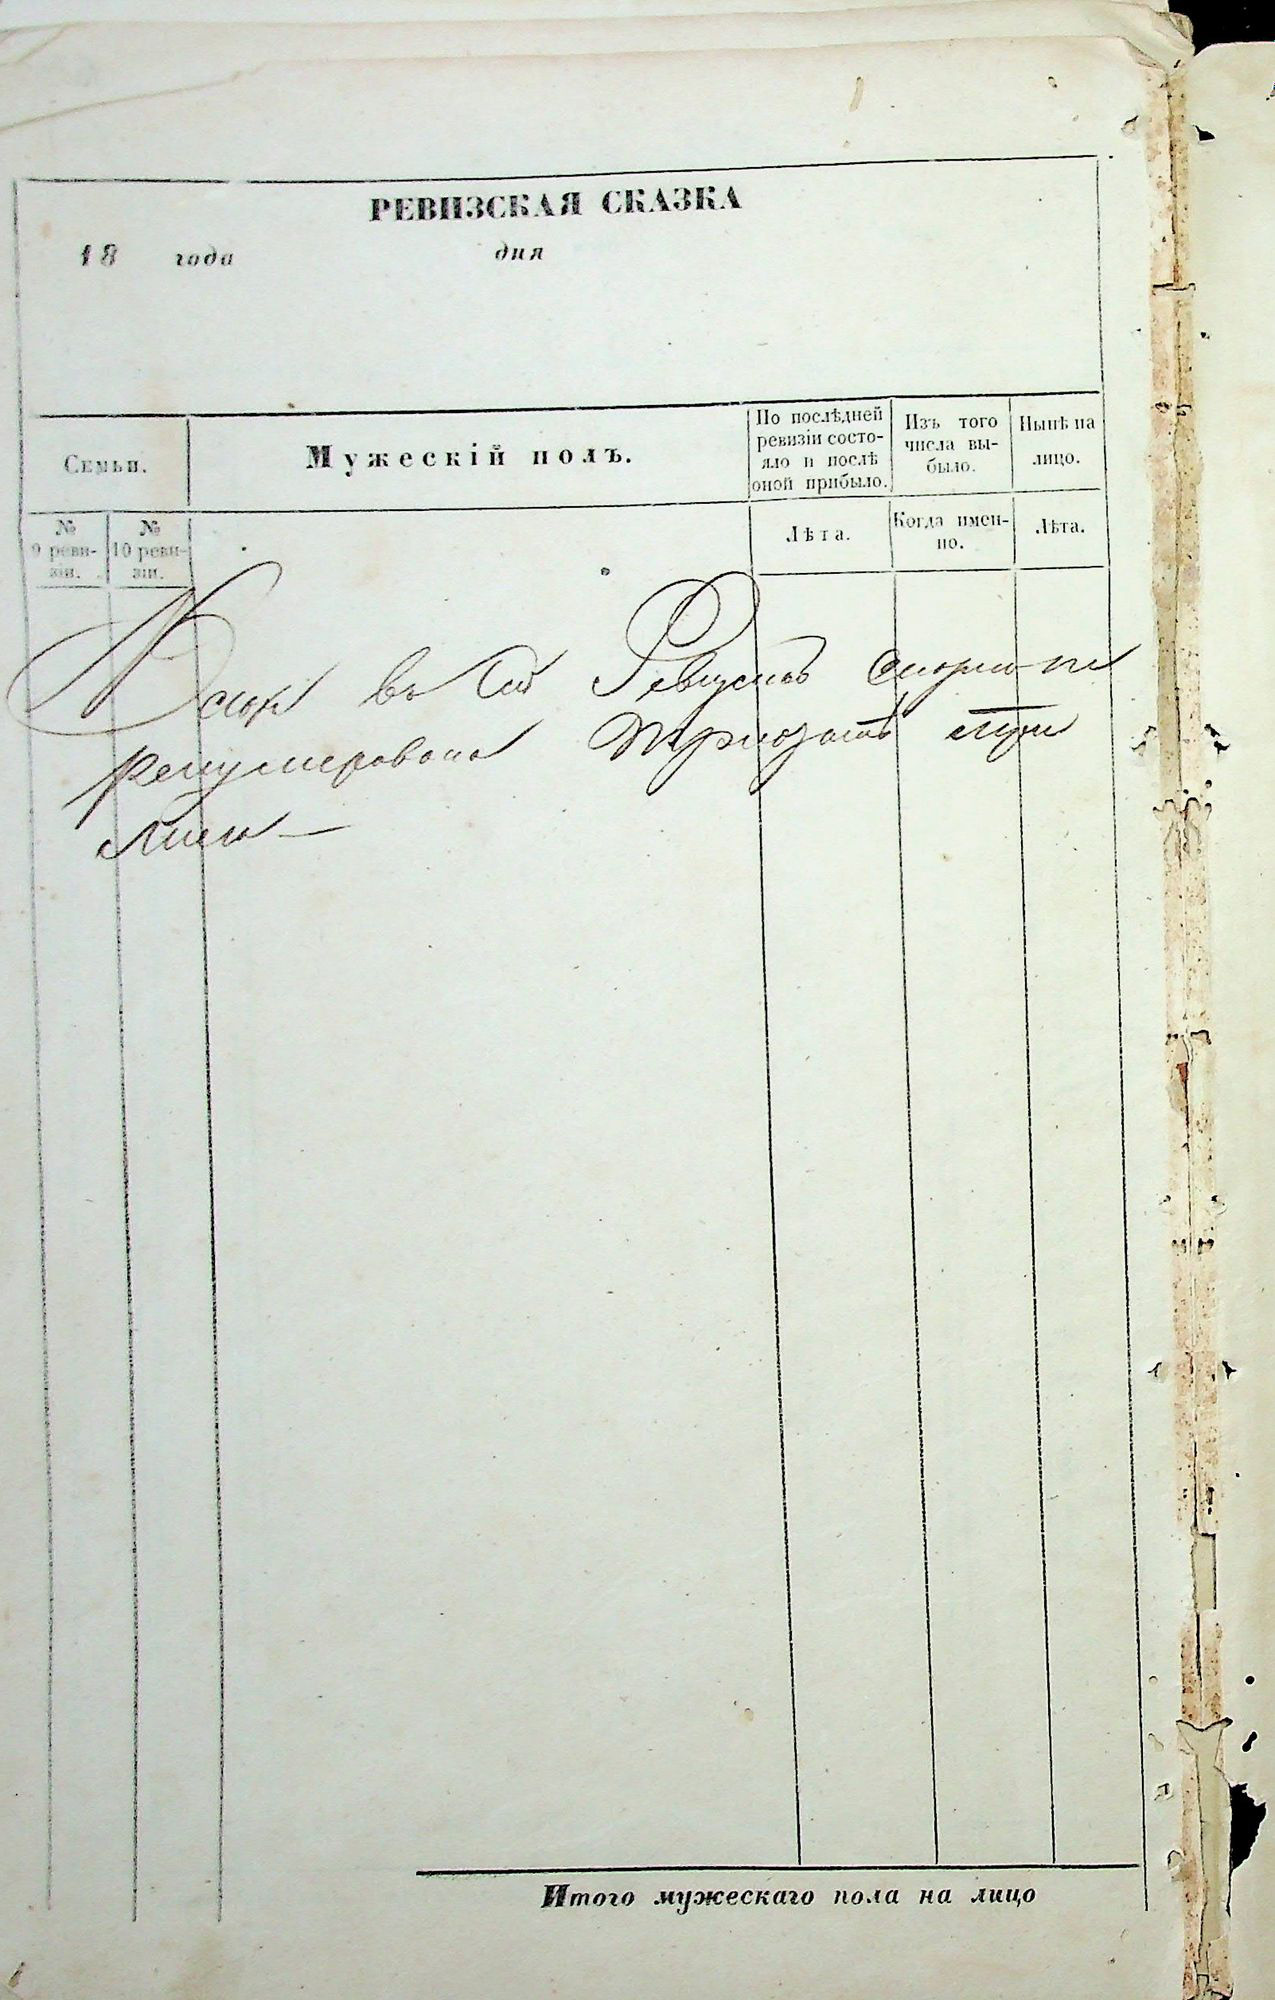 РЕВИЗСКАЯ СКАЗКА
18 года дня
Семьи.
Мужескій полъ.
По послѣдней
ревизіи состо-
яло и послѣ
оной прибыло.
Изъ того
числа вы-
было.
Нынѣ на
лицо.
№
9 реви-
зіи.
№
10 реви-
зіи.
Лѣта.
Когда имен-
но.
Лѣта.
въ сей
ренумеровано Тридцать три
листа —
Итого мужескаго пола на лицо